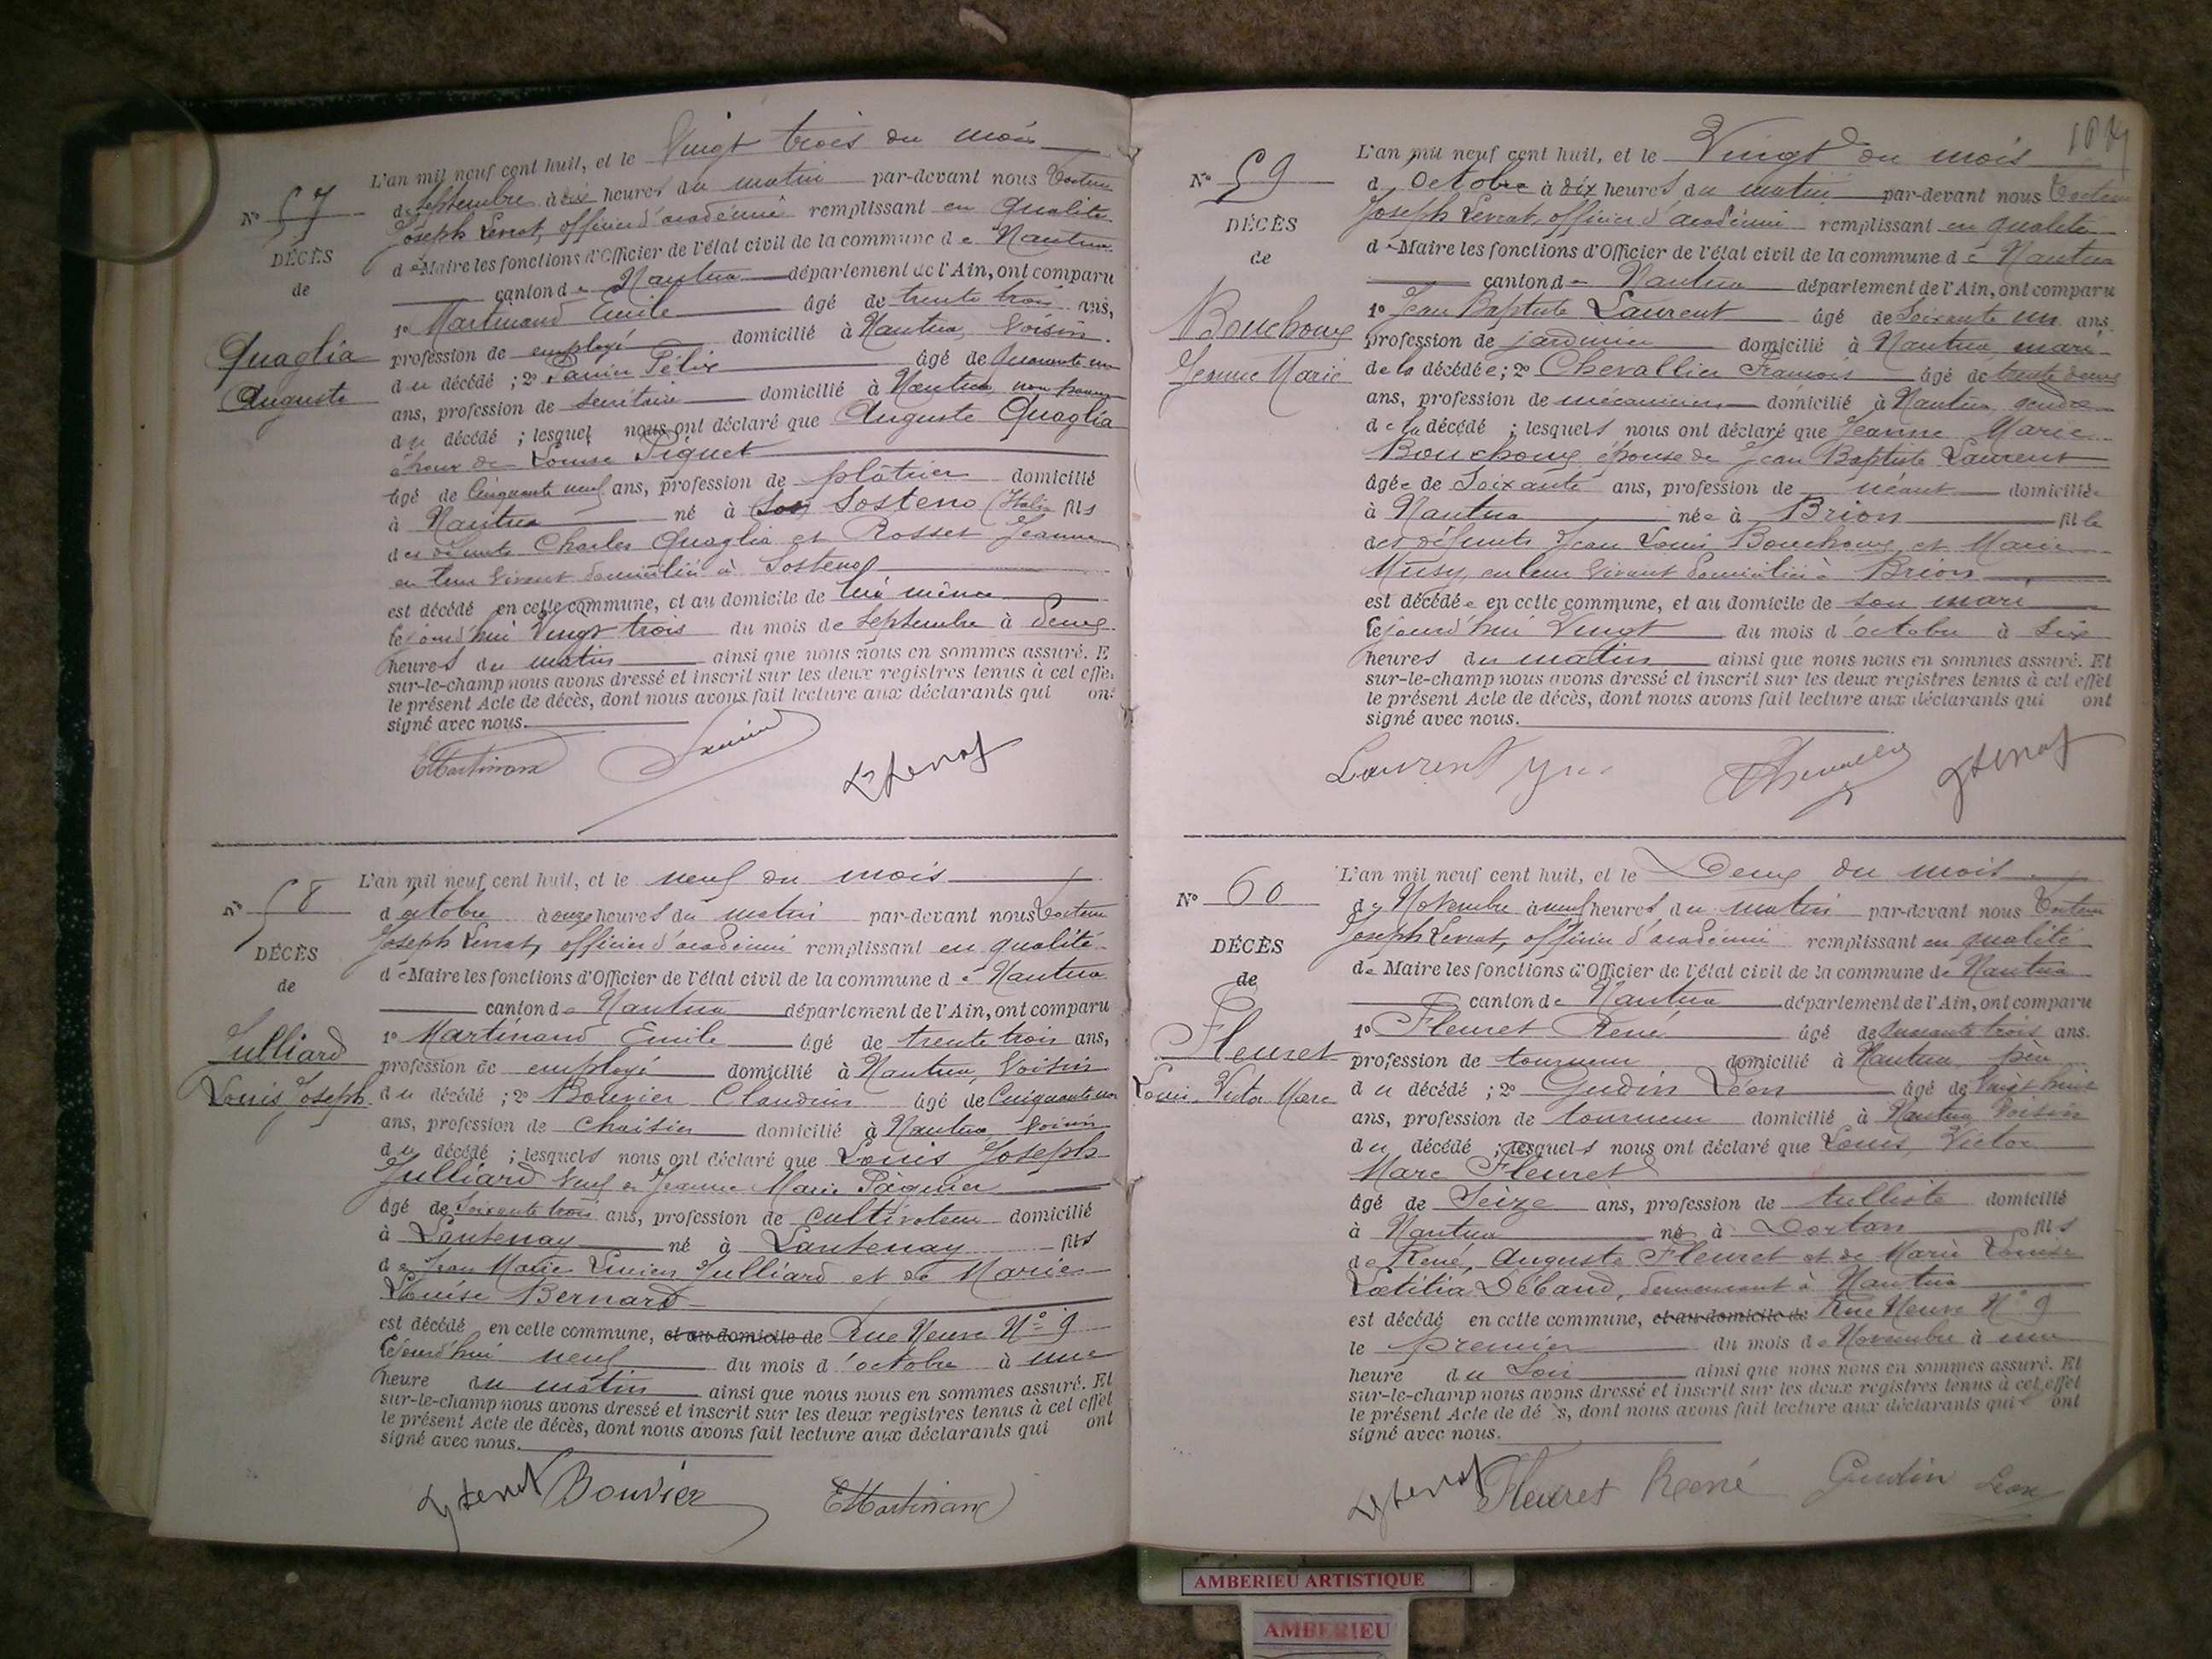 L'an mil neuf cent huit, et le Vingt trois du mois
N° 57
de Septembre à dix heures du matin par-devant nous Docteur
Joseph Levrat, officier d'académie remplissant en qualité
DÉCÈS
de Maire les fonctions d'Officier de l'état civil de la commune de Nantua
de
canton de Nantua département de l'Ain, ont comparu
1° Martinand Emile âgé de trente trois ans,
Quaglia
profession de employé domicilié à Nantua, Voisin
Auguste
du décédé ; 2° Panin Félix âgé de quarante un
ans, profession de Secrétaire domicilié à Nantua, non parent
du décédé ; lesquels nous ont déclaré que Auguste Quaglia
époux de Louise Piquet
âgé de Cinquante neuf ans, profession de plâtrier domicilié
à Nantua né à Sosteno (Italie) fils
des défunts Charles Quaglia et Rosset Jeanne
en leur vivant domiciliés à Sosteno
est décédé en cette commune, et au domicile de lui même
lejourd'hui Vingt trois du mois de Septembre à deux
heures du matin ainsi que nous nous en sommes assuré. E
sur-le-champ nous avons dressé et inscrit sur les deux registres tenus à cet effe
le présent Acte de décès, dont nous avons fait lecture aux déclarants qui ont
signé avec nous.
EMartinand
L'an mil neuf cent huit, et le neuf du mois
N° 58
d'octobre à onze heures du matin par-devant nous Docteur
Joseph Levrat, officier d'académie remplissant en qualité
DÉCÈS
de Maire les fonctions d'Officier de l'état civil de la commune de Nantua
de
canton de Nantua département de l'Ain, ont comparu
1° Martinand Emile âgé de trente trois ans,
Julliard
profession de employé domicilié à Nantua, Voisin
Louis Joseph
du décédé ; 2° Bouvier Claudius âgé de Cinquante un
ans, profession de Chaisier domicilié à Nantua, Voisin
du décédé ; lesquels nous ont déclaré que Louis Joseph
Julliard Veuf de Jeanne Marie Pâquier
âgé de Soixante trois ans, profession de cultivateur domicilié
à Lantenay né à Lantenay fils
de Jean Marie Lucien Julliard et de Marie
Louise Bernard
est décédé en cette commune, et au domicile de Rue Neuve N° 9
lejourd'hui neuf du mois d'octobre à une
heure du matin ainsi que nous nous en sommes assuré. Et
sur-le-champ nous avons dressé et inscrit sur les deux registres tenus à cet effet
le présent Acte de décès, dont nous avons fait lecture aux déclarants qui ont
signé avec nous.
Bouvier EMartinand
L'an mil neuf cent huit, et le Vingt du mois
N° 59
d'Octobre à dix heures du matin par-devant nous Docteur
Joseph Levrat, officier d'académie remplissant en qualité
DÉCÈS
de Maire les fonctions d'Officier de l'état civil de la commune de Nantua
de
canton de Nantua département de l'Ain, ont comparu
1° Jean Baptiste Laurent âgé de Soixante un ans
Bouchoux
profession de jardinier domicilié à Nantua, mari
Jeanne Marie
de la décédée ; 2° Chevallier François âgé de trente deux
ans, profession de mécanicien domicilié à Nantua gendre
de la décédé ; lesquels nous ont déclaré que Jeanne Marie
Bouchoux épouse de Jean Baptiste Laurent
âgée de Soixante ans, profession de néant domiciliée
à Nantua née à Brion fille
des défunts Jean Louis Bouchoux et Marie
Musy, en leur vivant domiciliés à Brion
est décédée en cette commune, et au domicile de son mari
lejourd'hui Vingt du mois d'octobre à six
heures du matin ainsi que nous nous en sommes assuré. Et
sur-le-champ nous avons dressé et inscrit sur les deux registres tenus à cet effet
le présent Acte de décès, dont nous avons fait lecture aux déclarants qui ont
signé avec nous.
Laurent Chevallier
L'an mil neuf cent huit, et le Deux du mois
N° 60
de Novembre à neuf heures du matin par-devant nous Docteur
Joseph Levrat, officier d'académie remplissant en qualité
DÉCÈS
de Maire les fonctions d'Officier de l'état civil de la commune de Nantua
de
canton de Nantua département de l'Ain, ont comparu
1° Fleuret René âgé de quarante trois ans.
Fleuret
profession de tourneur domicilié à Nantua, père
Louis Victor Marc
du décédé ; 2° Gudin Léon âgé de Vingt huit
ans, profession de tourneur domicilié à Nantua Voisin
du décédé ; lesquels nous ont déclaré que Louis, Victor
Marc Fleuret
âgé de Seize ans, profession de tulliste domicilié
à Nantua né à Dortan fils
de René, Auguste Fleuret et de Marie Louise
Lœtitia Débaud, demeurant à Nantua
est décédé en cette commune, et au domicile de Rue Neuve N° 9
le premier du mois de Novembre à une
heure du Soir ainsi que nous nous en sommes assuré. Et
sur-le-champ nous avons dressé et inscrit sur les deux registres tenus à cet effet
le présent Acte de dé s, dont nous avons fait lecture aux déclarants qui ont
signé avec nous.
Fleuret René Gudin Léon
AMBERIEU ARTISTIQUE
AMBERIEU